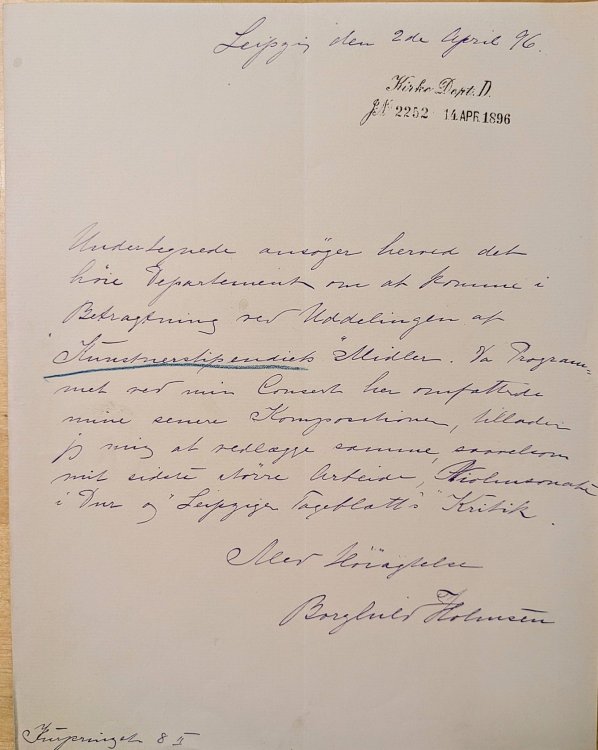 Leipzig den 2de April 96.
Kirke Dept. D.
J.N. 2252 14 APR. 1896
Undertegnede ansöger herved det
höie Departement om at komme i
Betragtning ved Uddelingen af
"Kunstnerstipendiets" Midler. Da Program-
met ved min Concert her omfattede
mine senere Kompositioner, tillader
jeg mig at vedlægge samme, saavelsom
mit sidste större Arbeide, Violinsonate
i Dur og "Leipziger Tageblatt's" Kritik.
Med Höiagtelse
Borghild Holmsen
8 II